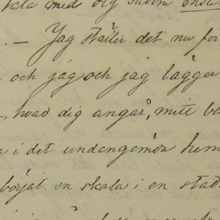 tala med dig såsom
. — Jag ställer det nu för
och jag och jag lägger
, hvad dig angår, mitt
i det undangömda hem
börjat en skola i en stad